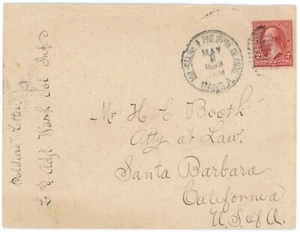 Soldiers Letter
Lt & Adjt Wash Vol Inf
MIL. STA. NO. 1 PHILIPPINE ISLANDS
MAY
MANILA
Mr H. C. Booth
Atty at Law,
Santa Barbara
California
U.S.of A.